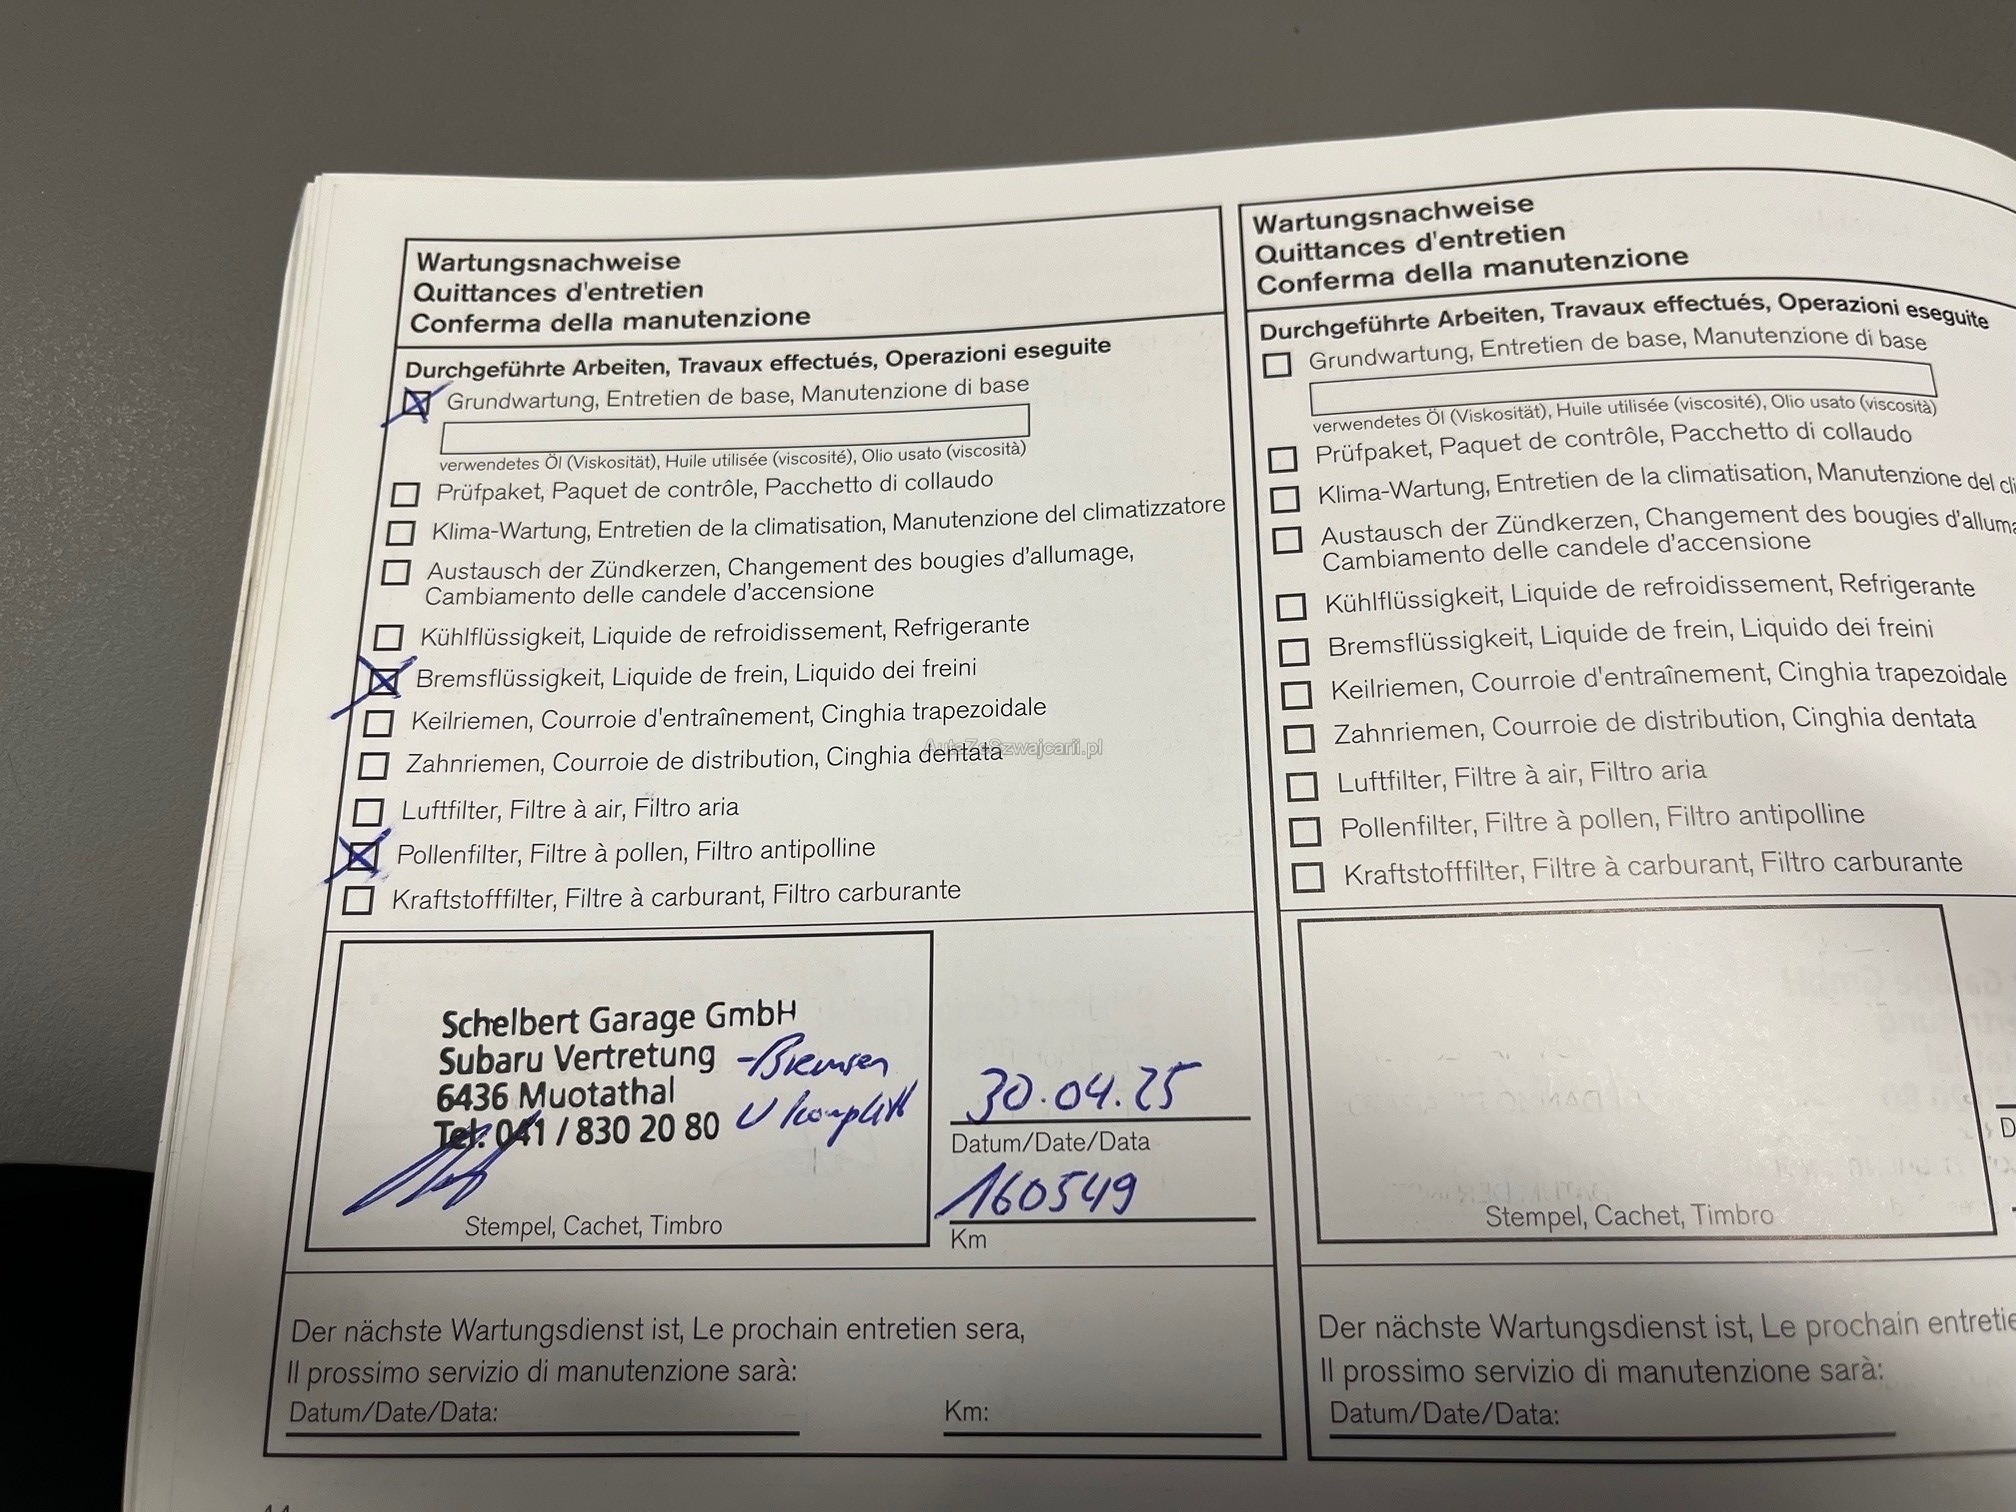 Wartungsnachweise
Quittances d'entretien
Conferma della manutenzione
Durchgeführte Arbeiten, Travaux effectués, Operazioni eseguite
Grundwartung, Entretien de base, Manutenzione di base
verwendetes Öl (Viskosität), Huile utilisée (viscosité), Olio usato (viscosità)
Prüfpaket, Paquet de contrôle, Pacchetto di collaudo
Klima-Wartung, Entretien de la climatisation, Manutenzione del climatizzatore
Austausch der Zündkerzen, Changement des bougies d'allumage,
Cambiamento delle candele d'accensione
Kühlflüssigkeit, Liquide de refroidissement, Refrigerante
Bremsflüssigkeit, Liquide de frein, Liquido dei freini
Keilriemen, Courroie d'entraînement, Cinghia trapezoidale
Zahnriemen, Courroie de distribution, Cinghia dentata
AutaZeSzwajcarii.pl
Luftfilter, Filtre à air, Filtro aria
Pollenfilter, Filtre à pollen, Filtro antipolline
Kraftstofffilter, Filtre à carburant, Filtro carburante
Schelbert Garage GmbH
Subaru Vertretung
6436 Muotathal
Tel. 041 / 830 20 80
-Bremsen
V komplett
Stempel, Cachet, Timbro
30.04.25
Datum/Date/Data
160549
Km
Der nächste Wartungsdienst ist, Le prochain entretien sera,
Il prossimo servizio di manutenzione sarà:
Datum/Date/Data:
Km:
Wartungsnachweise
Quittances d'entretien
Conferma della manutenzione
Durchgeführte Arbeiten, Travaux effectués, Operazioni eseguite
Grundwartung, Entretien de base, Manutenzione di base
verwendetes Öl (Viskosität), Huile utilisée (viscosité), Olio usato (viscosità)
Prüfpaket, Paquet de contrôle, Pacchetto di collaudo
Klima-Wartung, Entretien de la climatisation, Manutenzione del cli
Austausch der Zündkerzen, Changement des bougies d'alluma
Cambiamento delle candele d'accensione
Kühlflüssigkeit, Liquide de refroidissement, Refrigerante
Bremsflüssigkeit, Liquide de frein, Liquido dei freini
Keilriemen, Courroie d'entraînement, Cinghia trapezoidale
Zahnriemen, Courroie de distribution, Cinghia dentata
Luftfilter, Filtre à air, Filtro aria
Pollenfilter, Filtre à pollen, Filtro antipolline
Kraftstofffilter, Filtre à carburant, Filtro carburante
Stempel, Cachet, Timbro
D
Der nächste Wartungsdienst ist, Le prochain entretie
Il prossimo servizio di manutenzione sarà:
Datum/Date/Data: